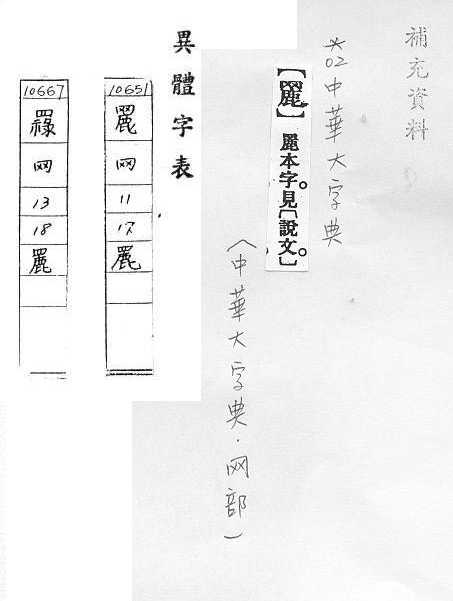 補充資料
*02中華大字典
【䍡】䍡本字。見〔說文〕。
(中華大字典.网部)
異體字表
10651
䍡
网
11
17
䍡
10667
网
13
18
䍡